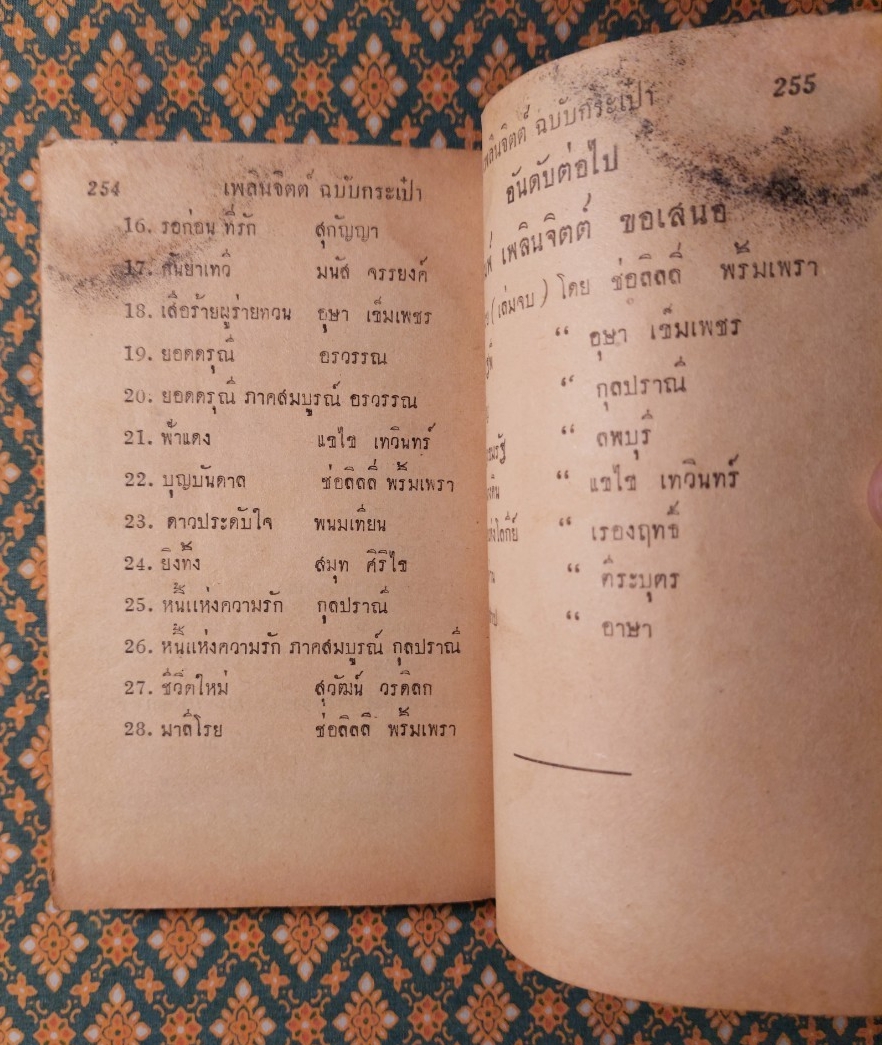 254 เพลินจิตต์ ฉบับกระเป๋า
16. รอก่อน ที่รัก สุกัญญา
17. กันยาเทวี มนัส จรรยงค์
18. เสือร้ายผู้ร่ายทวน อุษา เข็มเพชร
19. ยอดดรุณี อรวรรณ
20. ยอดดรุณี ภาคสมบูรณ์ อรวรรณ
21. ฟ้าแดง แขไข เทวินทร์
22. บุญบันดาล ช่อลิลลี่ พริ้มเพรา
23. ดาวประดับใจ พนมเทียน
24. ยิ่งทิ้ง สมุท ศิริไข
25. หนี้แห่งความรัก กุลปราณี
26. หนี้แห่งความรัก ภาคสมบูรณ์ กุลปราณี
27. ชีวิตใหม่ สุวัฒน์ วรดิลก
28. มาลีโรย ช่อลิลลี่ พริ้มเพรา
255
เพลินจิตต์ ฉบับกระเป๋า
อันดับต่อไป
เพลินจิตต์ ขอเสนอ
(เล่มจบ) โดย ช่อลิลลี่ พริ้มเพรา
“ อุษา เข็มเพชร
“ กุลปราณี
“ ลพบุรี
“ แขไข เทวินทร์
“ เรืองฤทธิ์
“ ศิระบุตร
“ อาษา